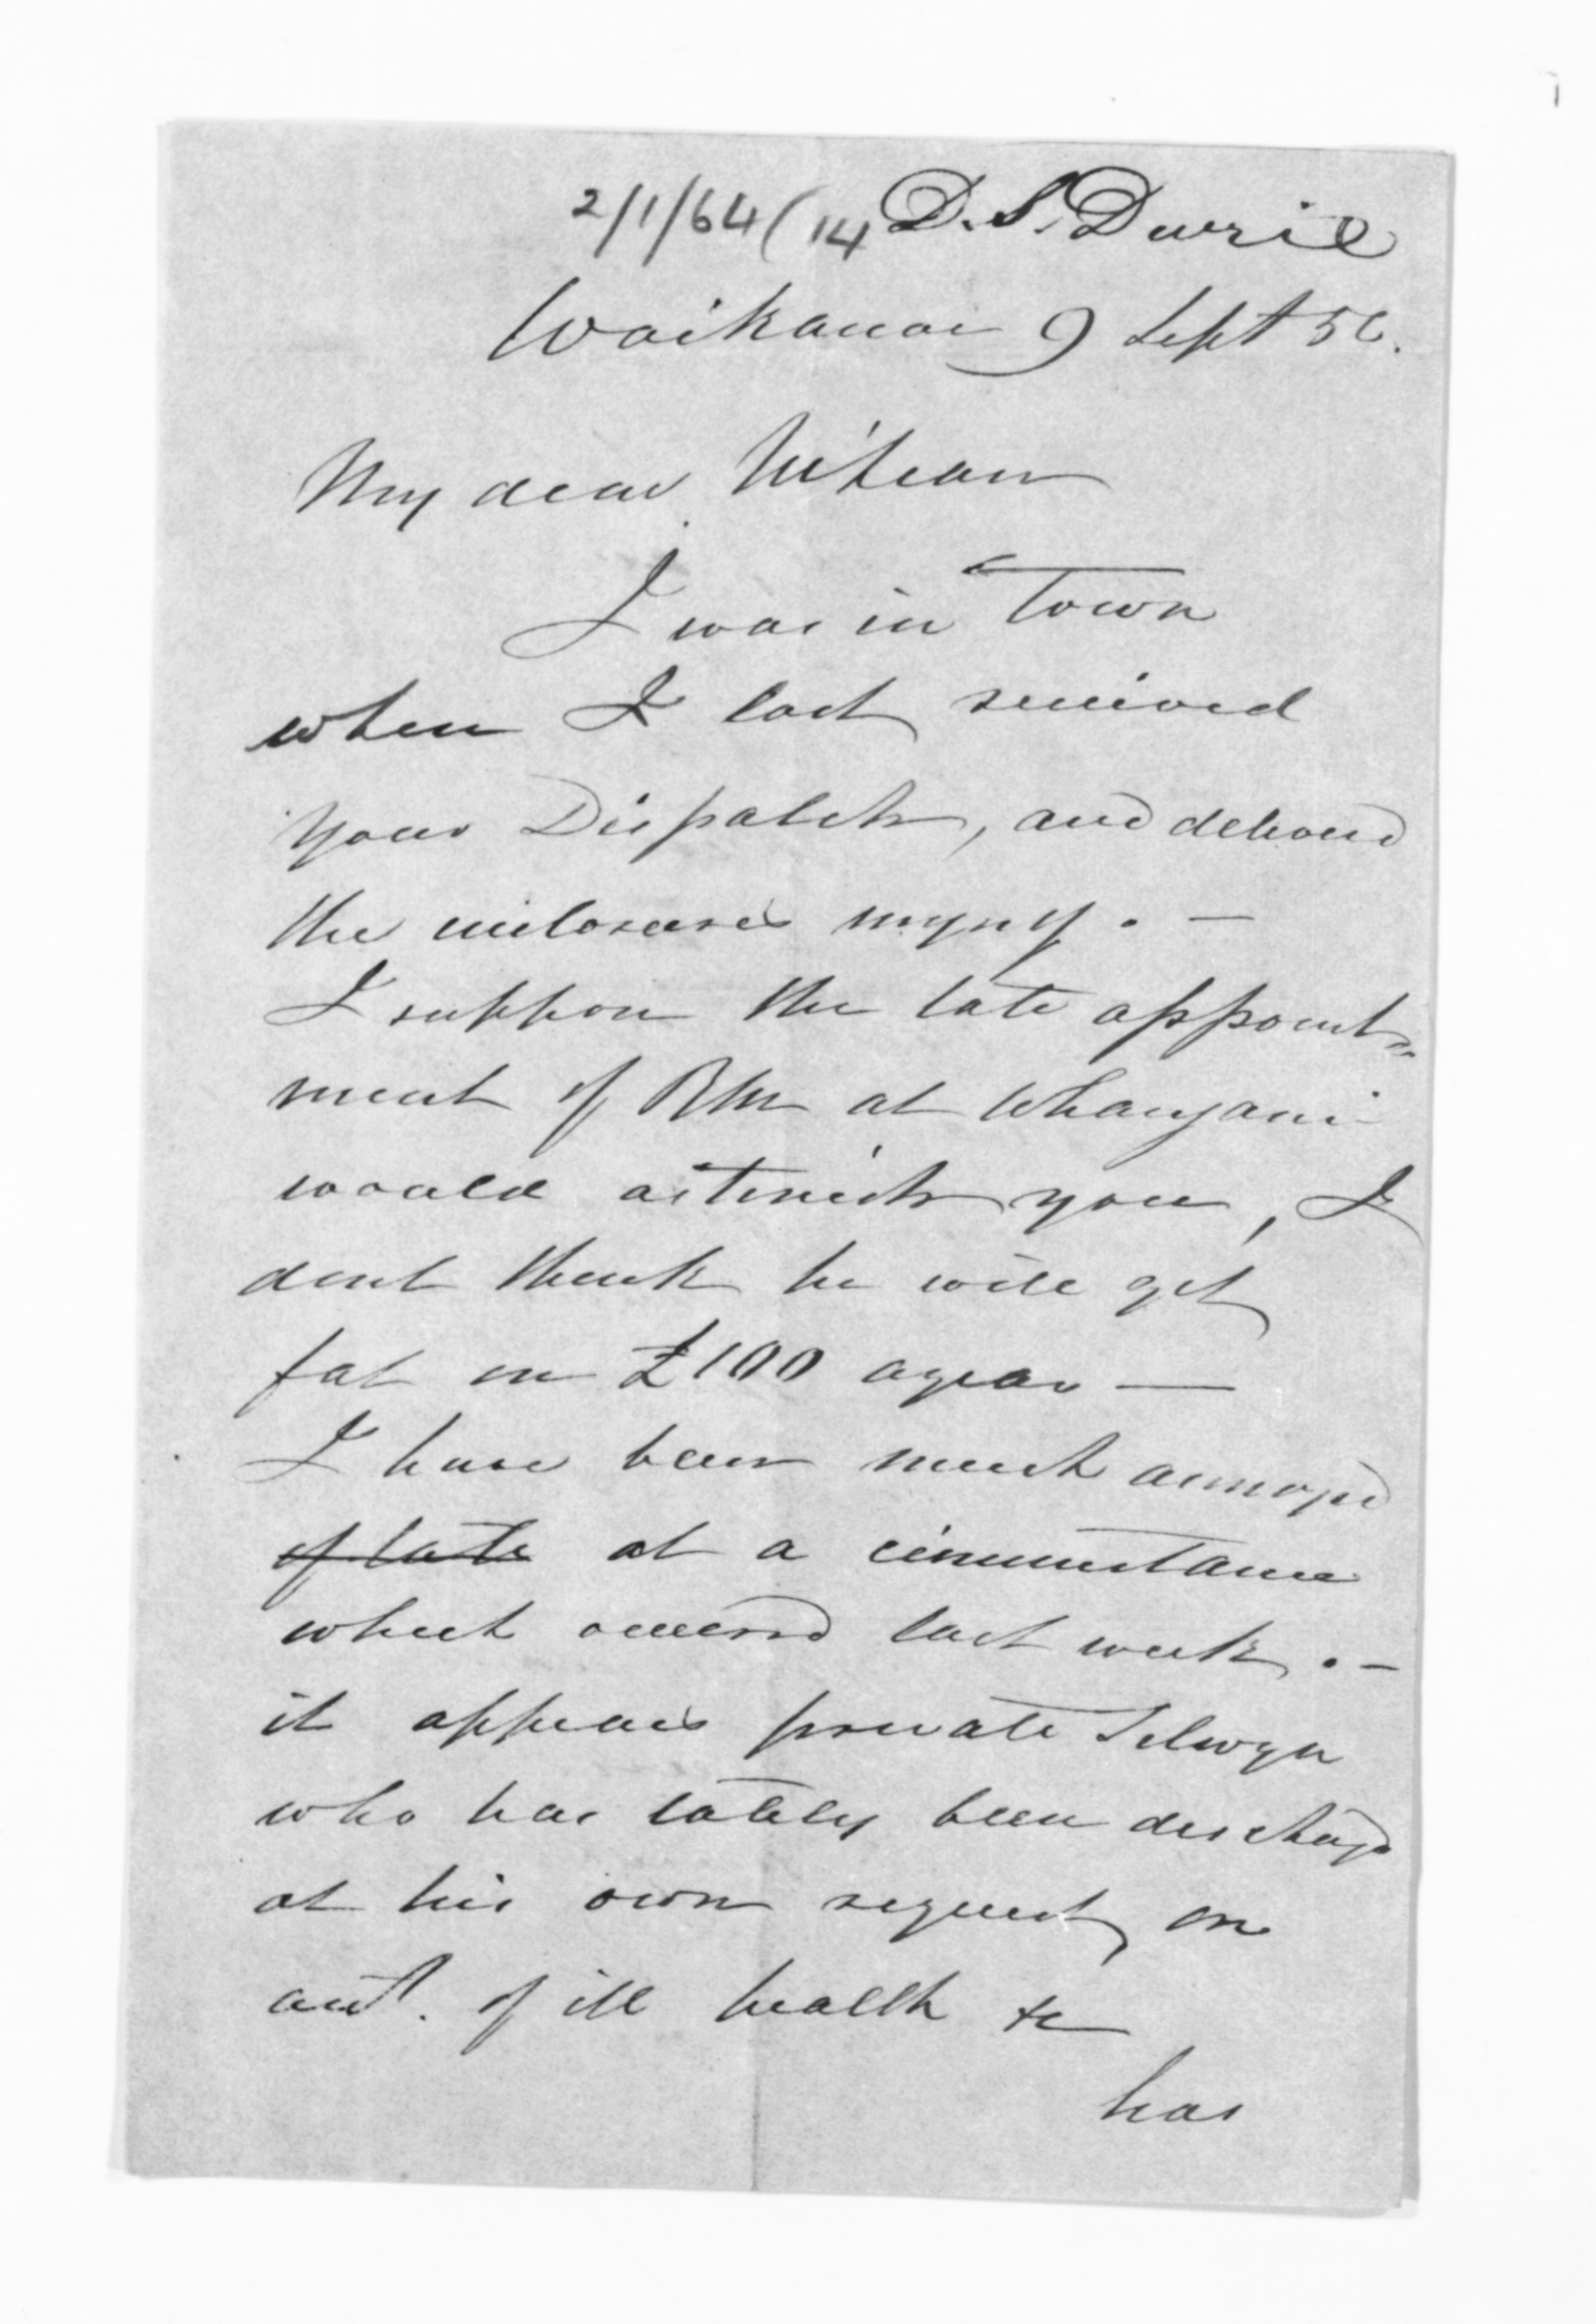 2/1/64 (14 D. S. Durie
Waikanae 9 Sept 50.
My dear McLean
I was in Town
when I last received
your Dispatch, and deliverd
the enclosures myself. —
I suppose the late appoint=
ment of RM at Whanganui
would astonish you, I
dont think he will get
fat on £100 a year —
I have been much annoyed
of late at a circumstance
which occurrd last week. —
it appears private Selwyn
who has lately been dischargd
at his own request, on
acct. of ill health &c
has